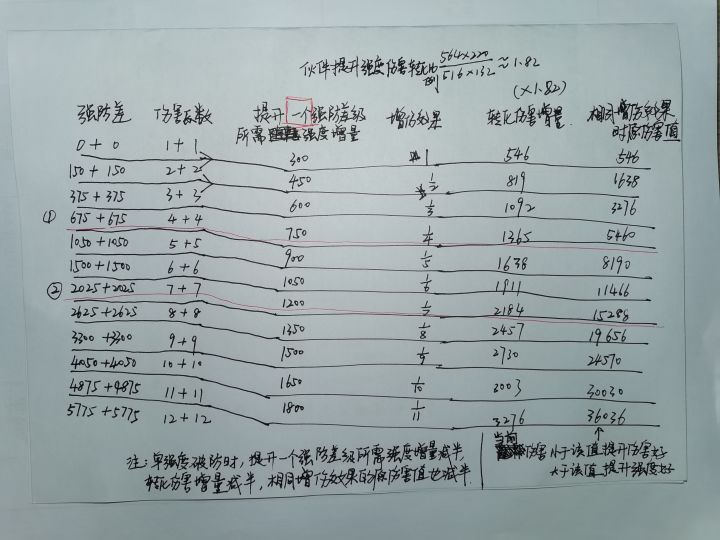 伙伴提升强度伤害转化比例 564×220/516×132 ≈1.82
(×1.82)
强防差 伤害系数 提升一个强防差级所需强度增量 增伤效果 转化伤害增量 相同增伤效果时原伤害值
0+0 1+1 300 1 546 546
150+150 2+2 450 1/2 819 1638
375+375 3+3 600 1/3 1092 3276
① 675+675 4+4 750 1/4 1365 5460
1050+1050 5+5 900 1/5 1638 8190
1500+1500 6+6 1050 1/6 1911 11466
② 2025+2025 7+7 1200 1/7 2184 15288
2625+2625 8+8 1350 1/8 2457 19656
3300+3300 9+9 1500 1/9 2730 24570
4050+4050 10+10 1650 1/10 3003 30030
4875+4875 11+11 1800 1/11 3276 36036
5775+5775 12+12
注:单强度破防时,提升一个强防差级所需强度增量减半,
转化伤害增量减半,相同增伤效果的原伤害值也减半.
当前伤害小于该值提升伤害好
大于该值提升强度好